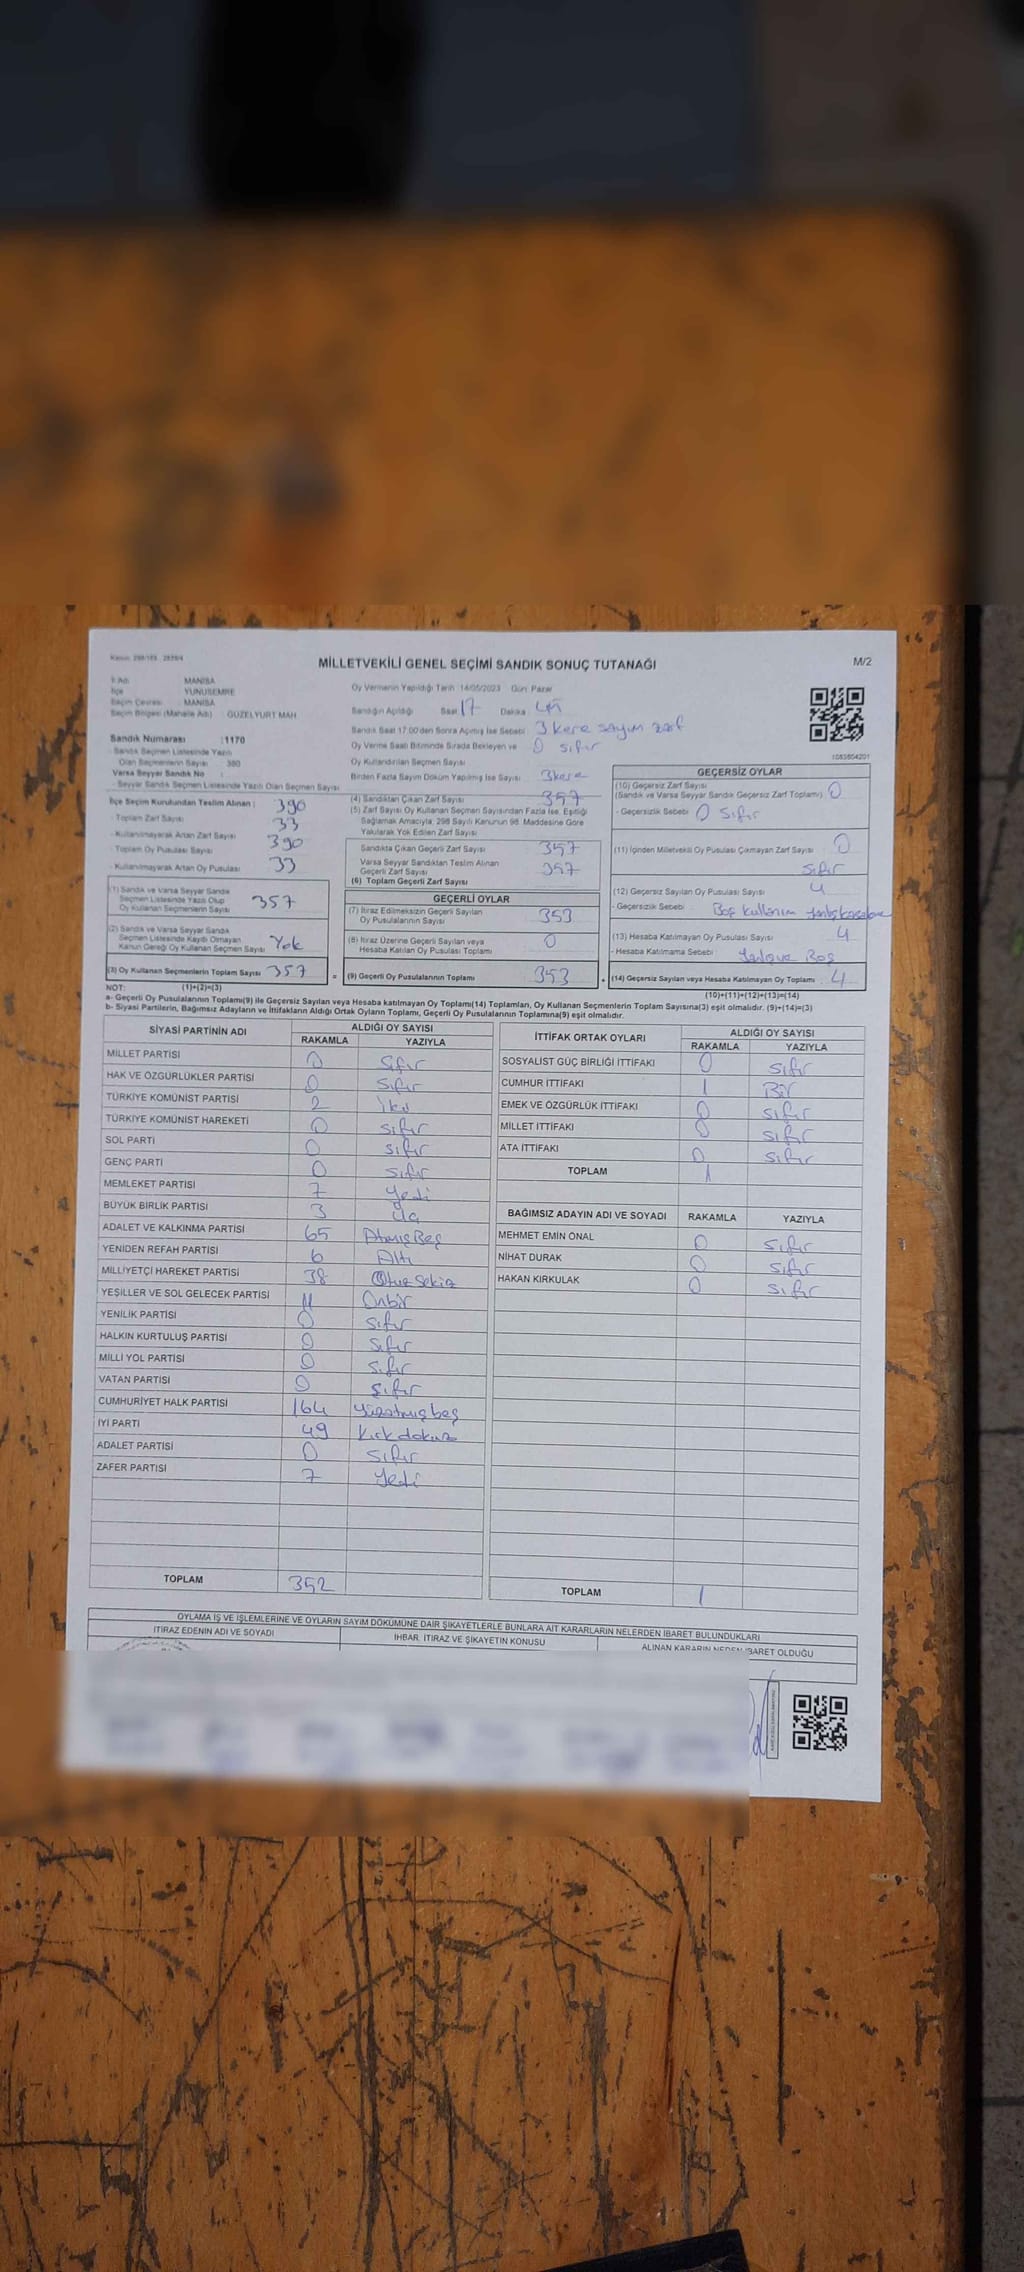 Kanun: 298/105 - 2839/4
MİLLETVEKİLİ GENEL SEÇİMİ SANDIK SONUÇ TUTANAĞI
M/2
İl Adı MANİSA
İlçe YUNUSEMRE
Seçim Çevresi MANİSA
Seçim Bölgesi (Mahalle Adı) : GÜZELYURT MAH
Sandık Numarası :1170
- Sandık Seçmen Listesinde Yazılı
Olan Seçmenlerin Sayısı 380
Varsa Seyyar Sandık No :
- Seyyar Sandık Seçmen Listesinde Yazılı Olan Seçmen Sayısı
İlçe Seçim Kurulundan Teslim Alınan : 390
- Toplam Zarf Sayısı
33
- Kullanılmayarak Artan Zarf Sayısı
390
- Toplam Oy Pusulası Sayısı
- Kullanılmayarak Artan Oy Pusulası 33
(1) Sandık ve Varsa Seyyar Sandık
Seçmen Listesinde Yazılı Olup
Oy Kullanan Seçmenlerin Sayısı 357
(2) Sandık ve Varsa Seyyar Sandık
Seçmen Listesinde Kayıtlı Olmayan
Kanun Gereği Oy Kullanan Seçmen Sayısı Yok
(3) Oy Kullanan Seçmenlerin Toplam Sayısı 357
Oy Vermenin Yapıldığı Tarih :14/05/2023 Gün: Pazar
Sandığın Açıldığı Saat 17 Dakika 45
Sandık Saat 17:00'den Sonra Açılmış İse Sebebi 3 kere sayım zarf
Oy Verme Saati Bitiminde Sırada Bekleyen ve 0 sıfır
Oy Kullandırılan Seçmen Sayısı
Birden Fazla Sayım Döküm Yapılmış İse Sayısı 3 kere
(4) Sandıktan Çıkan Zarf Sayısı 357
(5) Zarf Sayısı Oy Kullanan Seçmen Sayısından Fazla İse, Eşitliği
Sağlamak Amacıyla, 298 Sayılı Kanunun 98. Maddesine Göre
Yakılarak Yok Edilen Zarf Sayısı
Sandıkta Çıkan Geçerli Zarf Sayısı 357
Varsa Seyyar Sandıktan Teslim Alınan
Geçerli Zarf Sayısı 357
(6) Toplam Geçerli Zarf Sayısı
GEÇERLİ OYLAR
(7) İtiraz Edilmeksizin Geçerli Sayılan
Oy Pusulalarının Sayısı 353
(8) İtiraz Üzerine Geçerli Sayılan veya
Hesaba Katılan Oy Pusulası Toplamı 0
= (9) Geçerli Oy Pusulalarının Toplamı 353
1083804201
GEÇERSİZ OYLAR
(10) Geçersiz Zarf Sayısı
(Sandık ve Varsa Seyyar Sandık Geçersiz Zarf Toplamı) 0
- Geçersizlik Sebebi 0 sıfır
(11) İçinden Milletvekili Oy Pusulası Çıkmayan Zarf Sayısı 0
sıfır
(12) Geçersiz Sayılan Oy Pusulası Sayısı 4
- Geçersizlik Sebebi Boş kullanım
(13) Hesaba Katılmayan Oy Pusulası Sayısı 4
- Hesaba Katılmama Sebebi Boş
+ (14) Geçersiz Sayılan veya Hesaba Katılmayan Oy Toplamı 4
NOT: (1)+(2)=(3)
(10)+(11)+(12)+(13)=(14)
a- Geçerli Oy Pusulalarının Toplamı(9) ile Geçersiz Sayılan veya Hesaba katılmayan Oy Toplamı(14) Toplamları, Oy Kullanan Seçmenlerin Toplam Sayısına(3) eşit olmalıdır. (9)+(14)=(3)
b- Siyasi Partilerin, Bağımsız Adayların ve İttifakların Aldığı Ortak Oyların Toplamı, Geçerli Oy Pusulalarının Toplamına(9) eşit olmalıdır.
SİYASİ PARTİNİN ADI ALDIĞI OY SAYISI
RAKAMLA YAZIYLA
MİLLET PARTİSİ 0 sıfır
HAK VE ÖZGÜRLÜKLER PARTİSİ 0 sıfır
TÜRKİYE KOMÜNİST PARTİSİ 2 iki
TÜRKİYE KOMÜNİST HAREKETİ 0 sıfır
SOL PARTİ 0 sıfır
GENÇ PARTİ 0 sıfır
MEMLEKET PARTİSİ 7 yedi
BÜYÜK BİRLİK PARTİSİ 3 üç
ADALET VE KALKINMA PARTİSİ 65 Atmış Beş
YENİDEN REFAH PARTİSİ 6 Altı
MİLLİYETÇİ HAREKET PARTİSİ 38 Otuz Sekiz
YEŞİLLER VE SOL GELECEK PARTİSİ 11 Onbir
YENİLİK PARTİSİ 0 sıfır
HALKIN KURTULUŞ PARTİSİ 0 sıfır
MİLLİ YOL PARTİSİ 0 sıfır
VATAN PARTİSİ 0 sıfır
CUMHURİYET HALK PARTİSİ 164 yüzatmış beş
İYİ PARTİ 49 kırk dokuz
ADALET PARTİSİ 0 sıfır
ZAFER PARTİSİ 7 yedi
TOPLAM 352
İTTİFAK ORTAK OYLARI ALDIĞI OY SAYISI
RAKAMLA YAZIYLA
SOSYALİST GÜÇ BİRLİĞİ İTTİFAKI 0 sıfır
CUMHUR İTTİFAKI 1 Bir
EMEK VE ÖZGÜRLÜK İTTİFAKI 0 sıfır
MİLLET İTTİFAKI 0 sıfır
ATA İTTİFAKI 0 sıfır
TOPLAM 1
BAĞIMSIZ ADAYIN ADI VE SOYADI RAKAMLA YAZIYLA
MEHMET EMİN ÖNAL 0 sıfır
NİHAT DURAK 0 sıfır
HAKAN KIRKULAK 0 sıfır
TOPLAM 1
OYLAMA İŞ VE İŞLEMLERİNE VE OYLARIN SAYIM DÖKÜMÜNE DAİR ŞİKAYETLERLE BUNLARA AİT KARARLARIN NELERDEN İBARET BULUNDUKLARI
İTİRAZ EDENİN ADI VE SOYADI İHBAR, İTİRAZ VE ŞİKAYETİN KONUSU ALINAN KARARIN NEDEN İBARET OLDUĞU